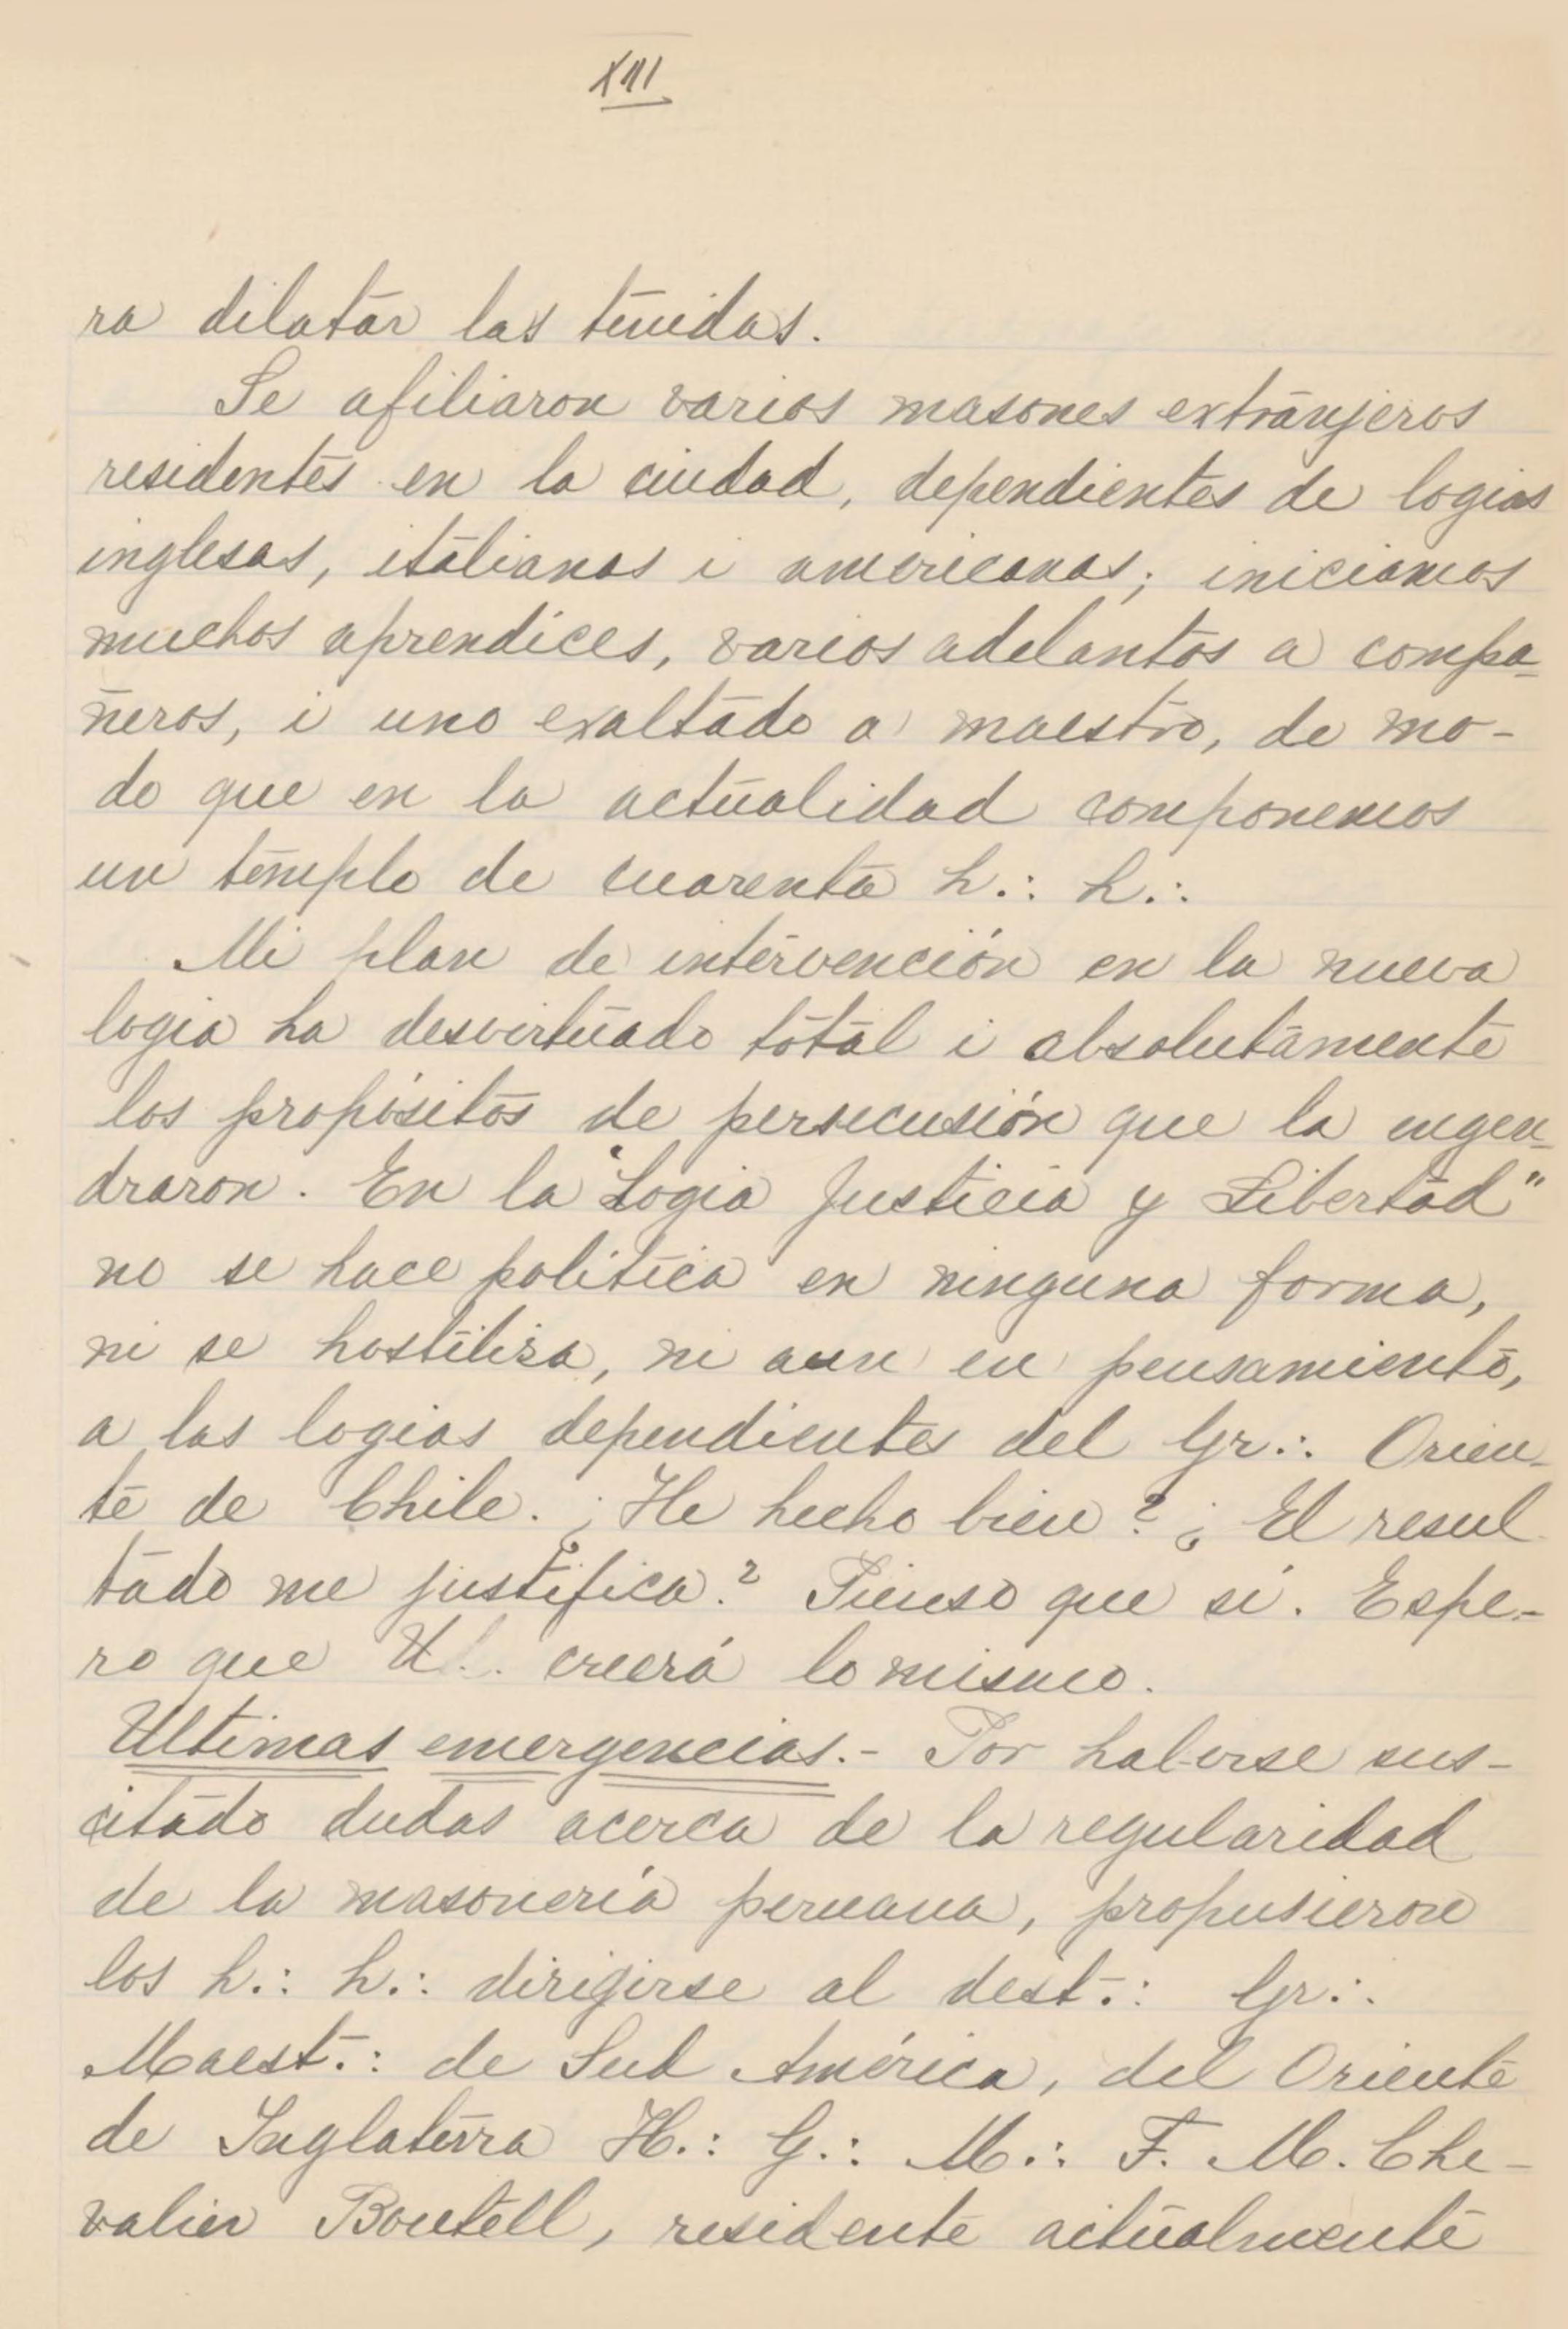 XIII
ra dilatar las tenidas.
Se afiliaron varios masones extranjeros
residentes en la ciudad, dependientes de logias
inglesas, italianas i americanas; iniciamos
muchos aprendices, varios adelantos a compa-
ñeros, i uno exaltado a maestro, de mo-
do que en la actualidad componemos
un templo de cuarenta h.: h.:
Mi plan de intervención en la nueva
logia ha desvirtuado total i absolutamente
los propósitos de persecusión que la engen-
draron. En la "Logia Justicia y Libertad"
no se hace política en ninguna forma,
ni se hostiliza, ni aun en pensamiento,
a las logias dependientes del Gr.: Orien-
te de Chile. ¿He hecho bien? ¿El resul
tado me justifica? Pienso que sí. Espe-
ro que U... creerá lo mismo.
Ultimas emergencias.- Por haberse sus-
citado dudas acerca de la regularidad
de la masonería peruana, propusieron
los h.: h.: dirigirse al dest.: Gr.:
Maest.: de Sud América, del Oriente
de Inglaterra H.: G.: M.: F. M. Che-
valier Boutell, residente actualmente